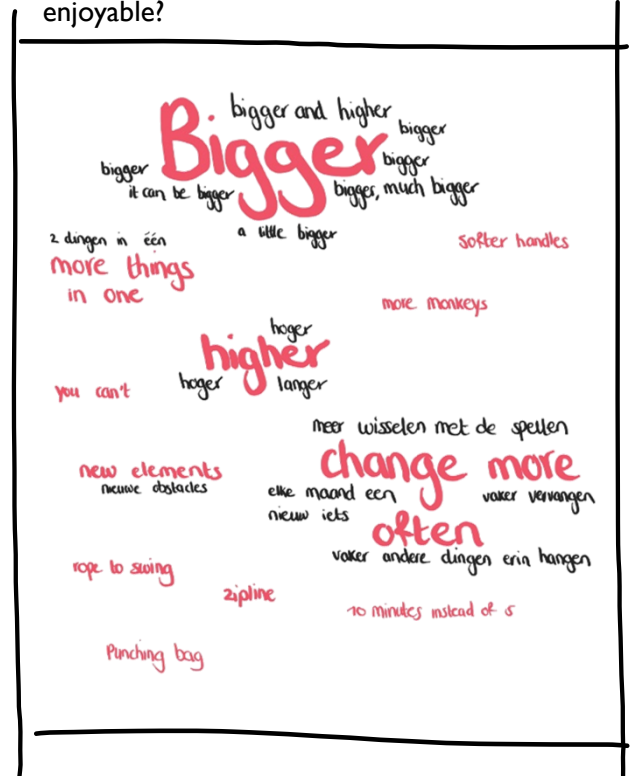 enjoyable?
bigger and higher
Bigger
bigger
bigger
bigger
it can be bigger
bigger, much bigger
a little bigger
2 dingen in één
more things
in one
softer handles
more monkeys
hoger
higher
hoger
langer
you can't
meer wisselen met de spellen
change more
often
new elements
nieuwe obstacles
elke maand een
nieuw iets
vaker vervangen
vaker andere dingen erin hangen
rope to swing
zipline
10 minutes instead of 5
Punching bag